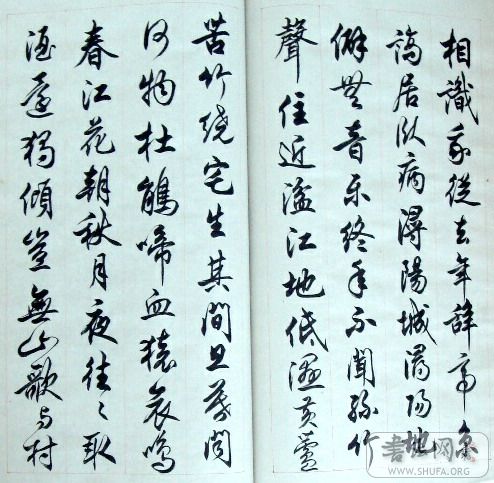 相識我從去年辭帝京
謫居臥病潯陽城潯陽地
僻無音乐終年不聞絲竹
聲住近湓江地低濕黃蘆
苦竹繞宅生其間旦暮聞
何物杜鵑啼血猿哀鳴
春江花朝秋月夜往〻取
酒還獨傾豈無山歌与村
WWW.SHUFA.ORG